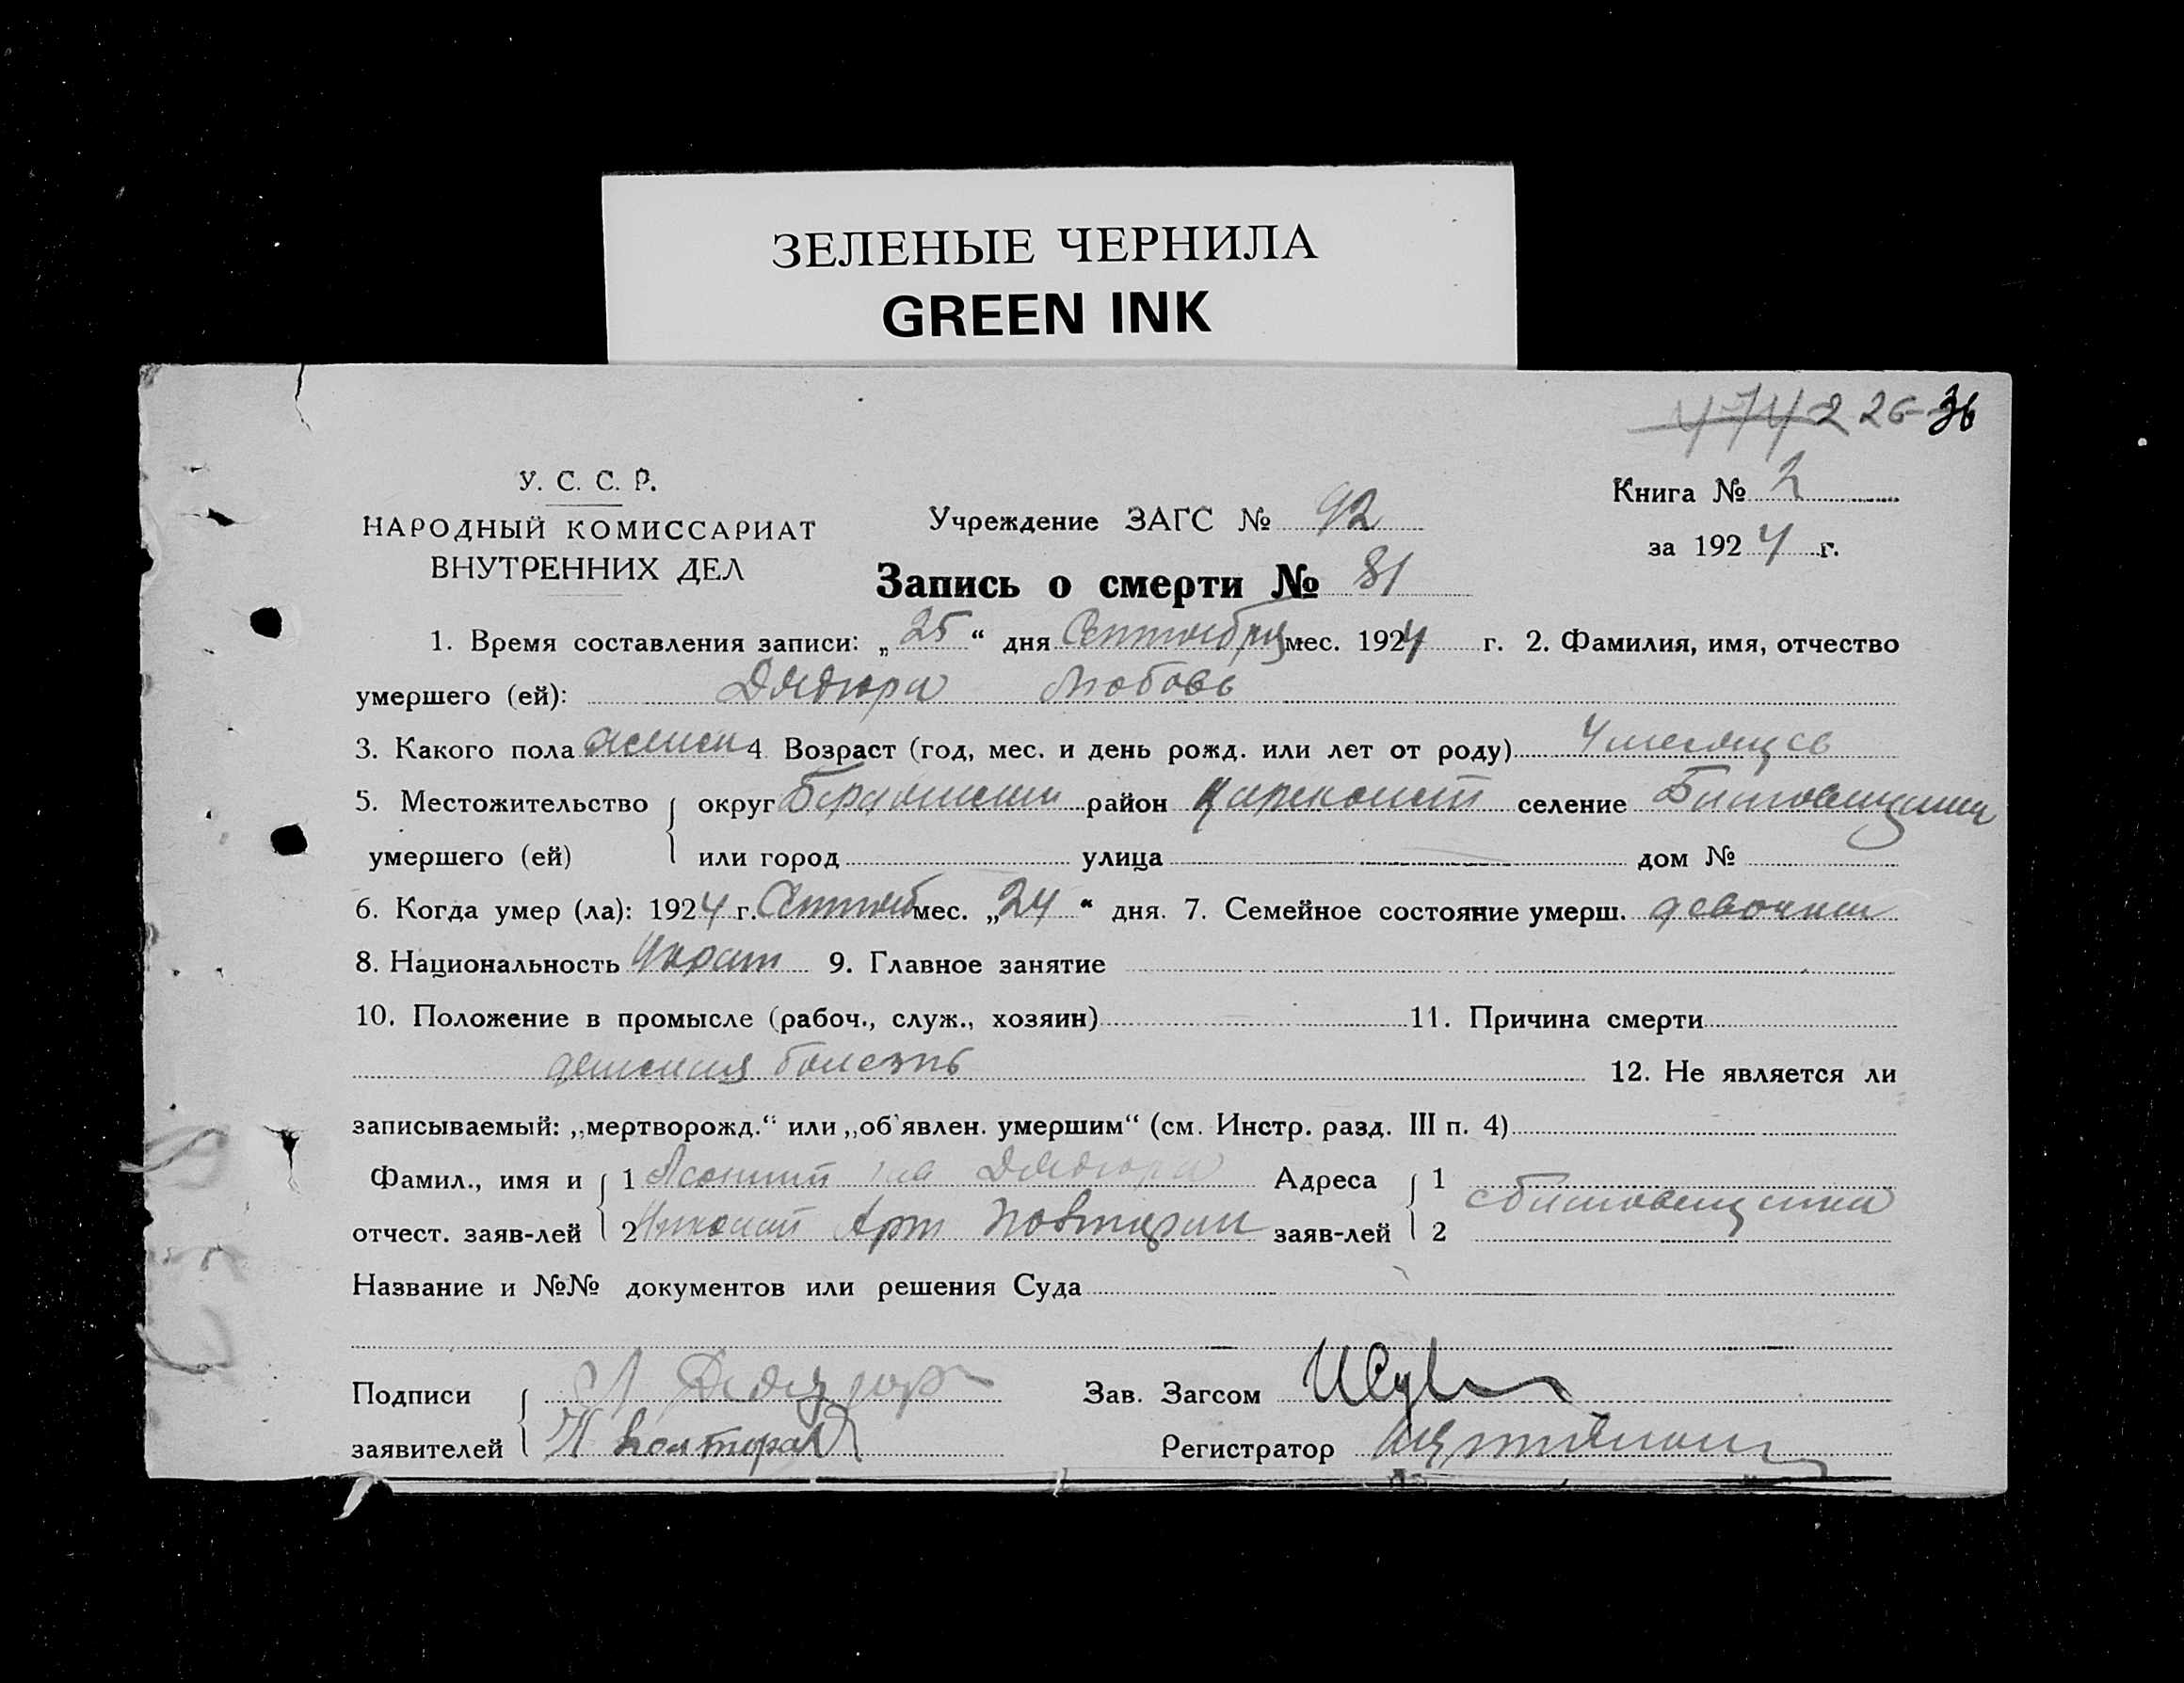 ЗЕЛЕНЫЕ ЧЕРНИЛА
GREEN INK
4742 26 36
У. С. С. Р.
НАРОДНЫЙ КОМИССАРИАТ
ВНУТРЕННИХ ДЕЛ
Учреждение ЗАГС № 92
Книга № 2
за 1924 г.
Запись о смерти № 81
1. Время составления записи: „25“ дня Сентября мес. 1924 г. 2. Фамилия, имя, отчество
умершего (ей): Дядюра Любовь
3. Какого пола женск 4 Возраст (год, мес. и день рожд. или лет от роду) 4 месяцев
5. Местожительство округ район селение
умершего (ей) или город улица дом №
6. Когда умер (ла): 1924 г. Сентяб мес. „24“ дня. 7. Семейное состояние умерш. девочка
8. Национальность Украин 9. Главное занятие
10. Положение в промысле (рабоч., служ., хозяин) 11. Причина смерти
детская болезнь 12. Не является ли
записываемый: „мертворожд.“ или „об'явлен. умершим“ (см. Инстр. разд. III п. 4)
Фамил., имя и 1 Дядюра Адреса 1
отчест. заяв-лей 2 Арт заяв-лей 2
Название и №№ документов или решения Суда
Подписи Зав. Загсом
заявителей Регистратор